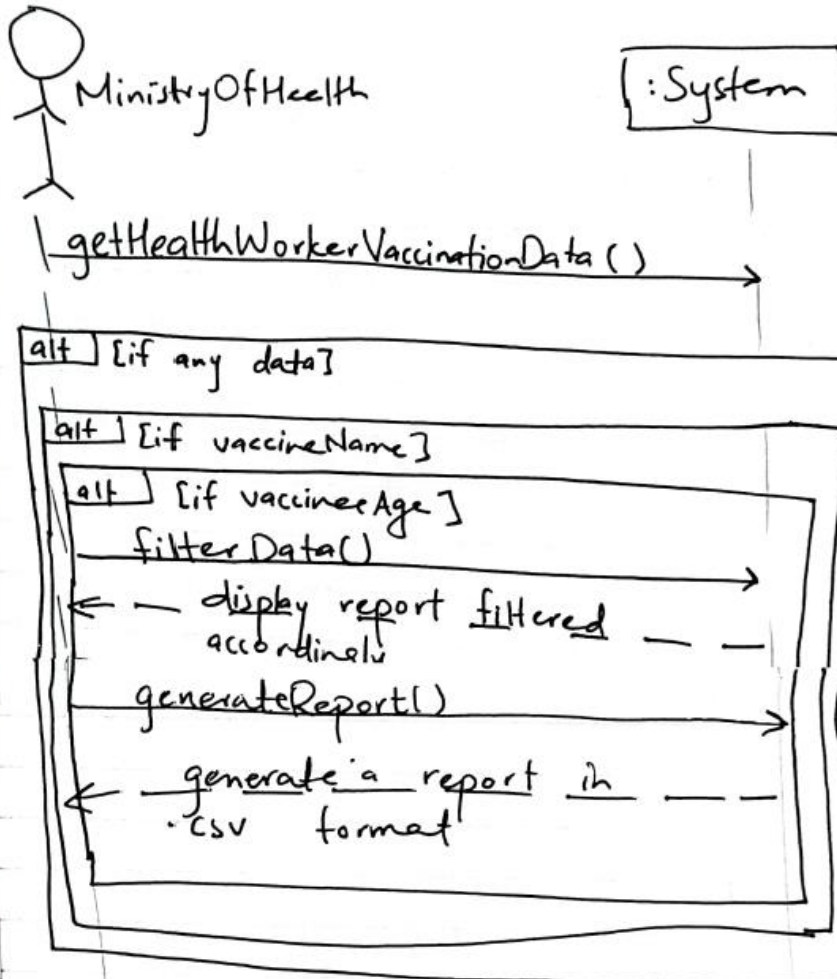 MinistryOfHealth
:System
getHealthWorkerVaccinationData()
alt [if any data]
alt [if vaccineName]
alt [if vaccineeAge]
filterData()
display report filtered
accordingly
generateReport()
generate a report in
.csv format